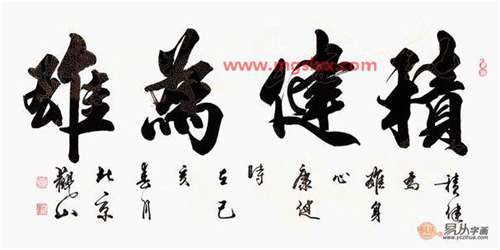 積健為雄
www.mgslxx.com
積健
為
雄身
心
康健
時
在己
亥
春月
北京
觀山
易从字画
www.yczihua.com